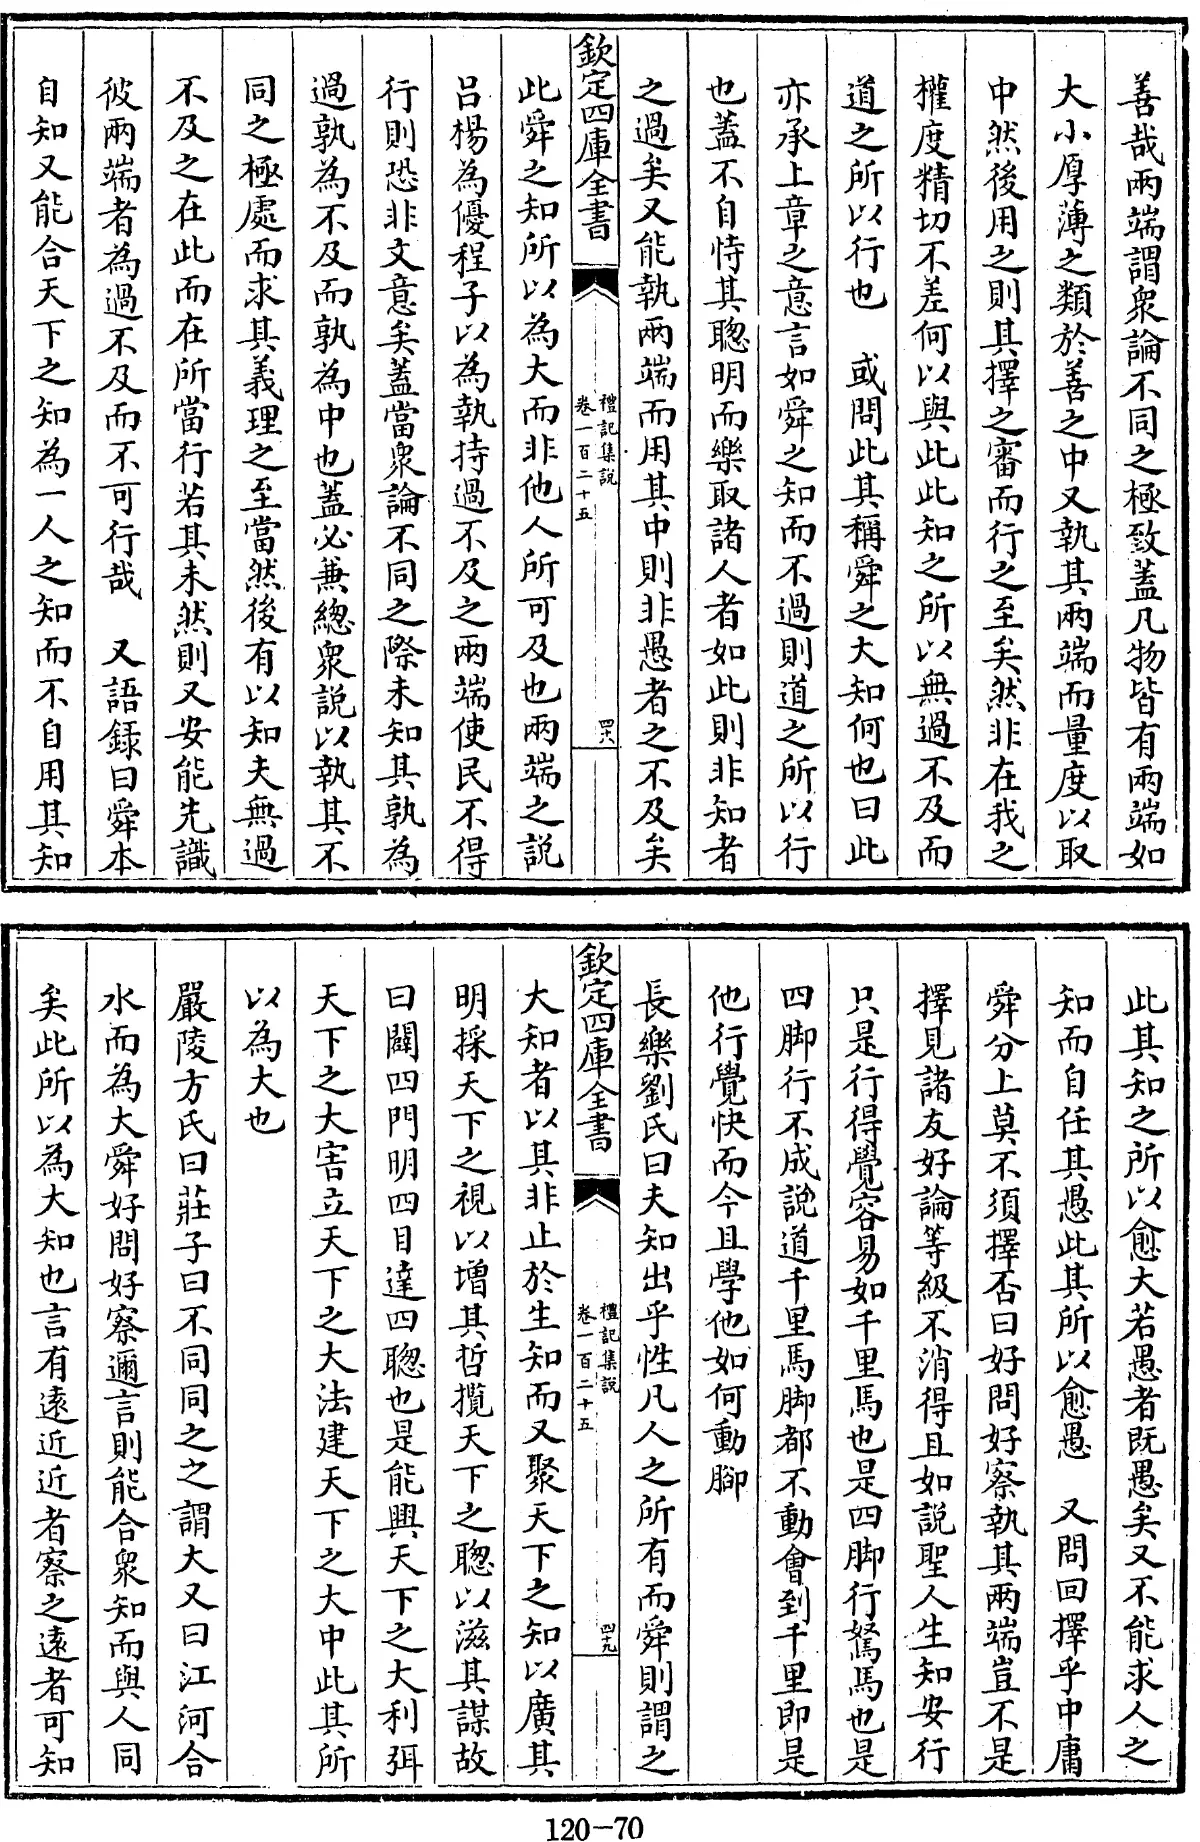 善哉兩端謂衆論不同之極致蓋凡物皆有兩端如
大小厚薄之類於善之中又執其兩端而量度以取
中然後用之則其擇之審而行之至矣然非在我之
權度精切不差何以與此此知之所以無過不及而
道之所以行也　或問此其稱舜之大知何也曰此
亦承上章之意言如舜之知而不過則道之所以行
也蓋不自恃其聰明而樂取諸人者如此則非知者
之過矣又能執兩端而用其中則非愚者之不及矣
欽定四庫全書
禮記集說
卷一百二十五
四十八
此舜之知所以為大而非他人所可及也兩端之說
呂楊為優程子以為執持過不及之兩端使民不得
行則恐非文意矣蓋當衆論不同之際未知其孰為
過孰為不及而孰為中也蓋必兼總衆說以執其不
同之極處而求其義理之至當然後有以知夫無過
不及之在此而在所當行若其未然則又安能先識
彼兩端者為過不及而不可行哉　又語錄曰舜本
自知又能合天下之知為一人之知而不自用其知
此其知之所以愈大若愚者既愚矣又不能求人之
知而自任其愚此其所以愈愚　又問回擇乎中庸
舜分上莫不須擇否曰好問好察執其兩端豈不是
擇見諸友好論等級不消得且如說聖人生知安行
只是行得覺容易如千里馬也是四脚行駑馬也是
四脚行不成說道千里馬脚都不動會到千里即是
他行覺快而今且學他如何動腳
長樂劉氏曰夫知出乎性凡人之所有而舜則謂之
欽定四庫全書
禮記集說
卷一百二十五
四十九
大知者以其非止於生知而又聚天下之知以廣其
明採天下之視以增其哲攬天下之聰以滋其謀故
曰闢四門明四目達四聰也是能興天下之大利弭
天下之大害立天下之大法建天下之大中此其所
以為大也
嚴陵方氏曰莊子曰不同同之之謂大又曰江河合
水而為大舜好問好察邇言則能合衆知而與人同
矣此所以為大知也言有遠近近者察之遠者可知
120-70